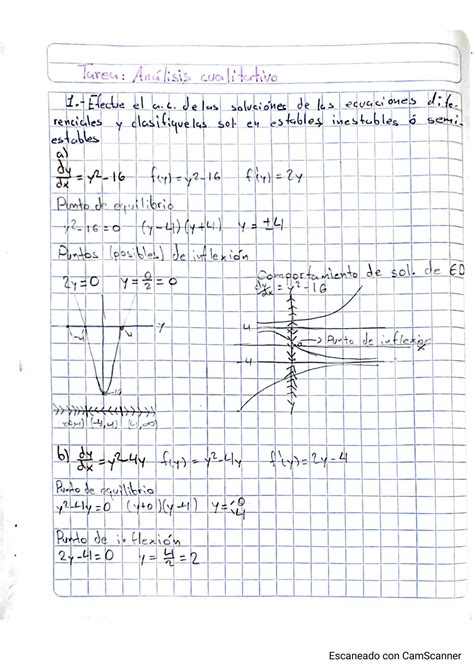 Tarea: Análisis cualitativo
1.- Efectue el a.c. de las soluciónes de las ecuaciones dife-
renciales y clasifiquelas sol. en estables, inestables ó semi-
estables
a)
dy/dx = y²-16 f(y) = y²-16 f'(y) = 2y
Punto de equilibrio
y²-16=0 (y-4)(y+4) y = ±4
Puntos (posibles) de inflexión
2y=0 y = 0/2 = 0
Comportamiento de sol. de ED
dy/dx = y²-16
-4 4 y
-16
4
→ Punto de inflexión
x
-4
y
(-4,4) (4,∞)
b) dy/dx = y²-4y f(y) = y²-4y f'(y) = 2y-4
Punto de equilibrio
y²-4y=0 (y+0)(y-4) y= 0 4
Punto de inflexión
2y-4=0 y = 4/2 = 2
Escaneado con CamScanner